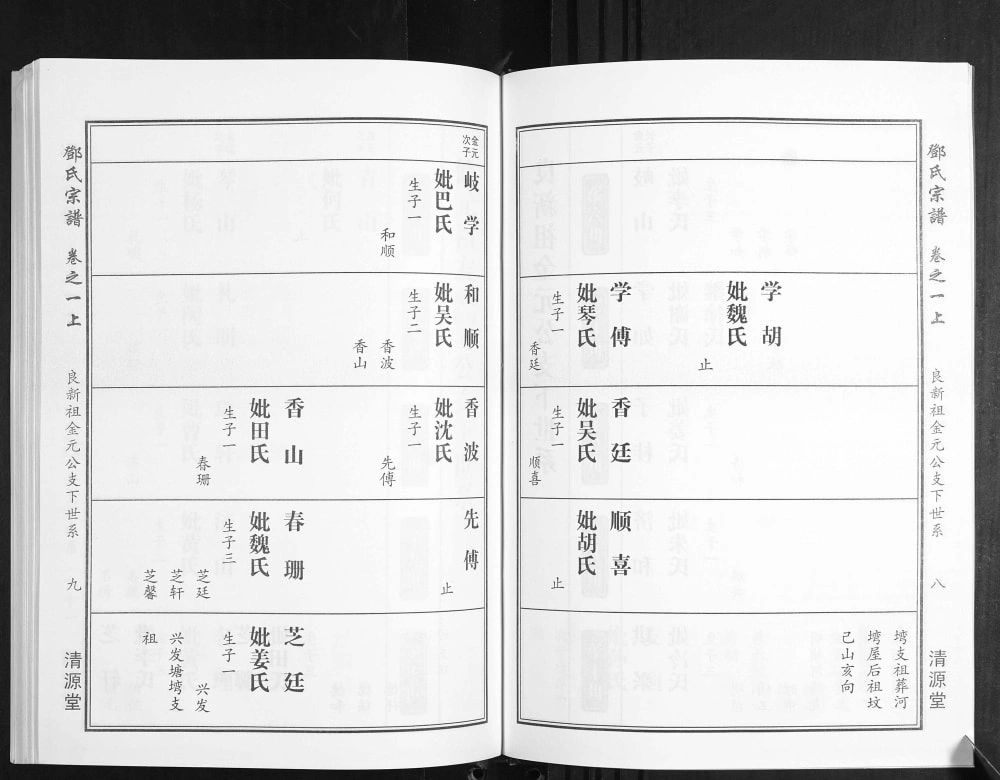 鄧氏宗譜
卷之一上
良新祖金元公支下世系
八
清源堂
学胡
妣魏氏
止
学傅
妣琴氏
生子一
香廷
香廷
妣吴氏
生子一
顺喜
顺喜
妣胡氏
止
塆支祖葬河
塆屋后祖坟
己山亥向
金元
次子
岐学
妣巴氏
生子一
和顺
和顺
妣吴氏
生子二
香波
香山
香波
妣沈氏
生子一
先傅
香山
妣田氏
生子一
春珊
先傅
止
春珊
妣魏氏
生子三
芝廷
芝轩
芝馨
芝廷
妣姜氏
生子一
兴发
兴发塘塆支
祖
鄧氏宗譜
卷之一上
良新祖金元公支下世系
九
清源堂